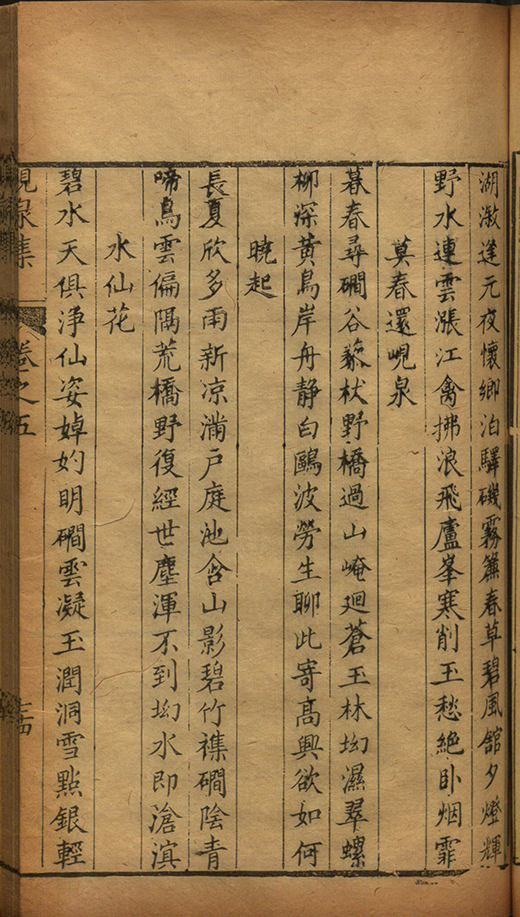 湖漵逢元夜懷鄉泊驛磯霧簾春草碧風舘夕燈輝
野水連雲漲江禽拂浪飛廬峯寒削玉愁絶卧烟霏
莫春還峴泉
暮春尋磵谷藜杖野橋過山崦廻蒼玉林坳濕翠螺
柳深黄鳥岸舟静白鷗波勞生聊此寄高興欲如何
曉起
長夏欣多雨新凉滿戶庭池含山影碧竹襍磵陰青
啼鳥雲偏隔荒橋野復經世塵渾不到坳水即滄溟
水仙花
碧水天俱淨仙姿婥妁明磵雲凝玉潤洞雪點銀輕
峴泉集 卷之五